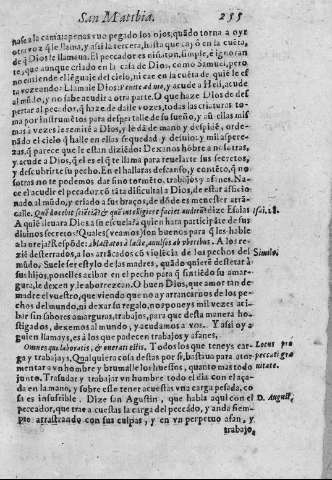 San Matthia. 255
nase a la cama, apenas vuo pegado los ojos, quãdo torna a oyr
otra voz q̃ le llama, y assi la tercera, hasta que cayò en la cuẽta,
de q̃ Dios le llamaua. El peccador es niñaton, simple, è ignoran
te, que aunque criado en la casa de Dios, como Samuel, pero
no entiende el lenguaje del cielo, ni cae en la cuẽta de quiẽ le es
ta vozeando: Llamale Dios: Venite ad me, y acude a Heli, acude
al mũdo, y no sabe acudir a otra parte. O que haze Dios de des
pertar al peccador, q̃ haze de dalle vozes, todas las criaturas to-
ma por instrumẽtos para despertalle de su sueño, y aũ ellas mis
mas a vezes le remitẽ a Dios, y le dã de mano y despidẽ, orde-
nãdo el cielo q̃ halle en ellas sequedad y desuio: y mil aspere-
zas, q̃ parece que le estan diziẽdo: Dexanos hõbre a nosotras,
y acude a Dios, q̃ el es el q̃ te llama para reuelarte sus secretos,
y descubrirte su pecho. En el hallaras descanso, y contẽto, q̃ no
sotras no te podemos dar sino tormẽto, trabajos y afanes. Na-
ce el acudir el peccador cõ tãta dificultad a Dios, de estar aficio
nado al mũdo, y criado a sus braços, de dõde es menester arrã-
calle. Quẽ docebit sciẽtiã? & quẽ intelligere faciet auditũ? dize Esaias Isai. 28.
A quiẽ lleuara Dios a su escuela? a quien hara participãte de sus
diuinos secretos? Quales (veamos) son buenos para q̃ les hable
a la oreja? Respõde: ablactatos à lacte, auulsos ab vberibus. A los re-
ziẽ desterrados, a los arrãcados cõ violẽcia de los pechos del Simile.
mũdo. Suele ser estylo de las madres, quãdo quierẽ destetar à
sus hijos, ponelles acibar en el pecho para q̃ sintiẽdo su amar-
gura, le dexen y le aborrezcan. O buen Dios, que amor tan de
madre el vuestro, que viendo que no ay arrancaros de los pe-
chos del mundo, ni dexar su regalo, nos poneys mil vezes aci-
bar sin sabores amarguras, trabajos, para que desta manera ho-
stigados, dexemos al mundo, y acudamos a vos. Y assi oy a
quien llamays, es a los que padecen trabajos y afanes,
Omnes qui laboratis, & onerati estis. Todos los que teneys car- Locus pro
ga y trabajays, Qualquiera cosa destas por si, bastaua para ator- peccati gra
mentar a vn hombre y brumalle los huessos, quanto mas todo uitate.
junto. Trasudar y trabajar vn hombre todo el dia con el aça-
da en la mano, y sobre esse tener acuestas vna carga pesada, co
sa es insufrible. Dize san Agustin, que habla aqui con el D. August.
peccador, que trae a cuestas la carga del peccado, y anda siem-
pre arrastrando con sus culpas, y en vn perpetuo afan, y
trabajo,